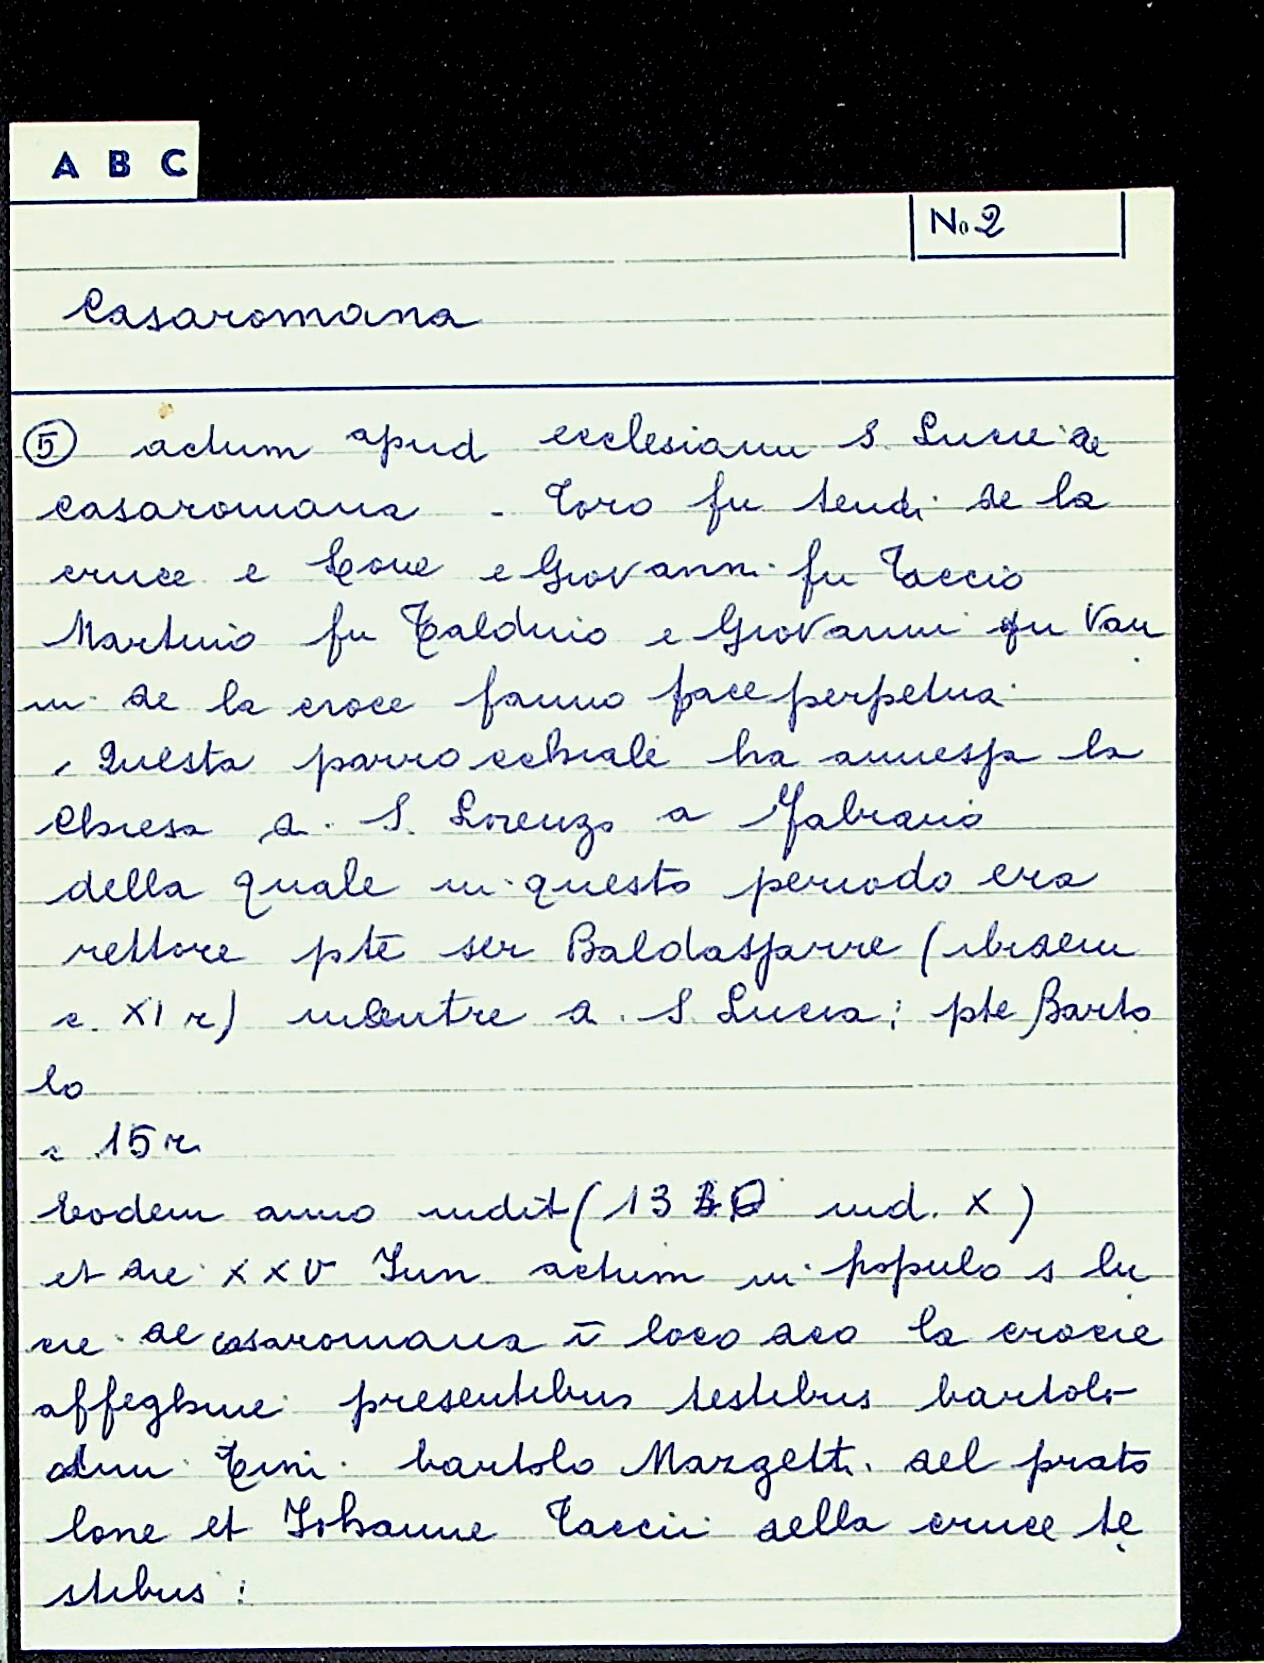 A B C
No 2
Casaromana
5 actum apud ecclesiam S. Lucie de
casaromana - Toro fu tendi de la
cruce e Cone e Giovanni fu Taccio
Martino fu Taldino e Giovanni fu Van
ni de la croce fanno pace perpetua
, Questa parrocchiale ha annessa la
Chiesa di S. Lorenzo a
della quale in questo periodo era
rettore pte ser Baldassarre (ibidem
c. XI r) mentre a S. Lucia; pte Barto
lo
c 15 r
Eodem anno indit (13 ind. X)
et die XXV Jun actum in populo s lu
cie de casaromana ī loco dco la crocie
presentibus testibus bartolo
bartolo Mazzetti del prato
lone et Johanne Taccii della cruce te
stibus: